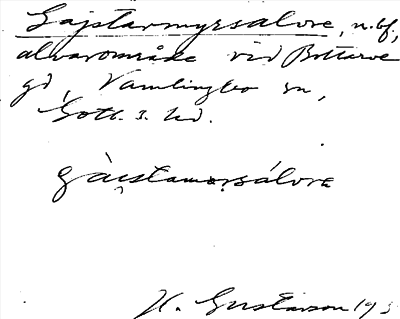 Gajstarmyrsalvre, n. bf,
alvarområde vid Bottarve
gd, Vamlingbo sn,
Gotl. s. hd.
gàistamorsálvrɛ
H. Gustavson 193